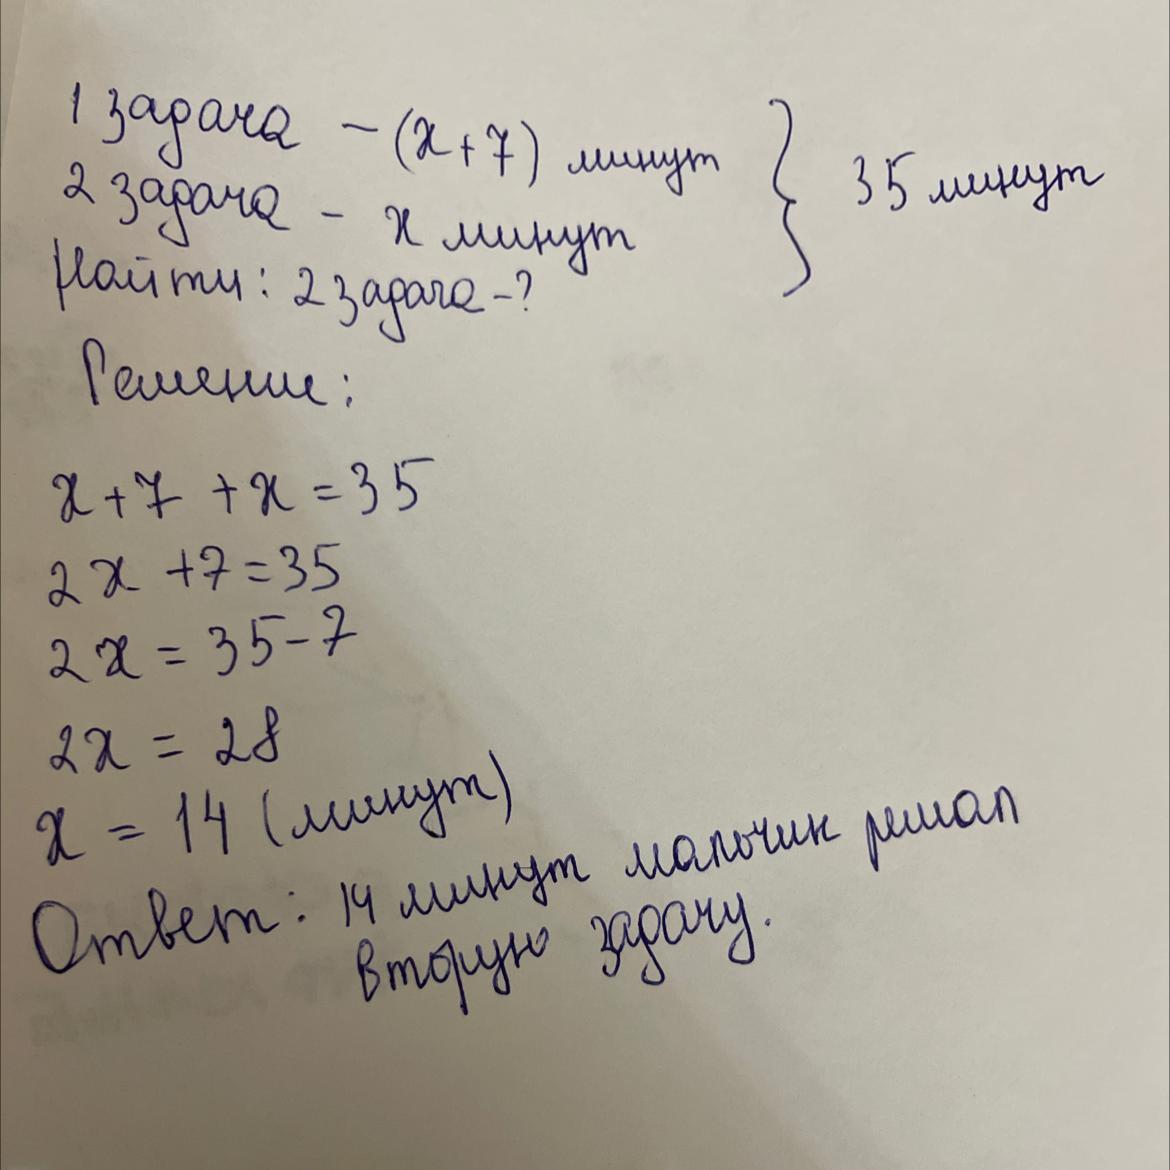 1 задача - (x+7) минут } 35 минут
2 задача - x минут
Найти: 2 задача - ?
Решение:
x+7 +x = 35
2x +7 = 35
2x = 35-7
2x = 28
x = 14 (минут)
Ответ: 14 минут мальчик решал
вторую задачу.